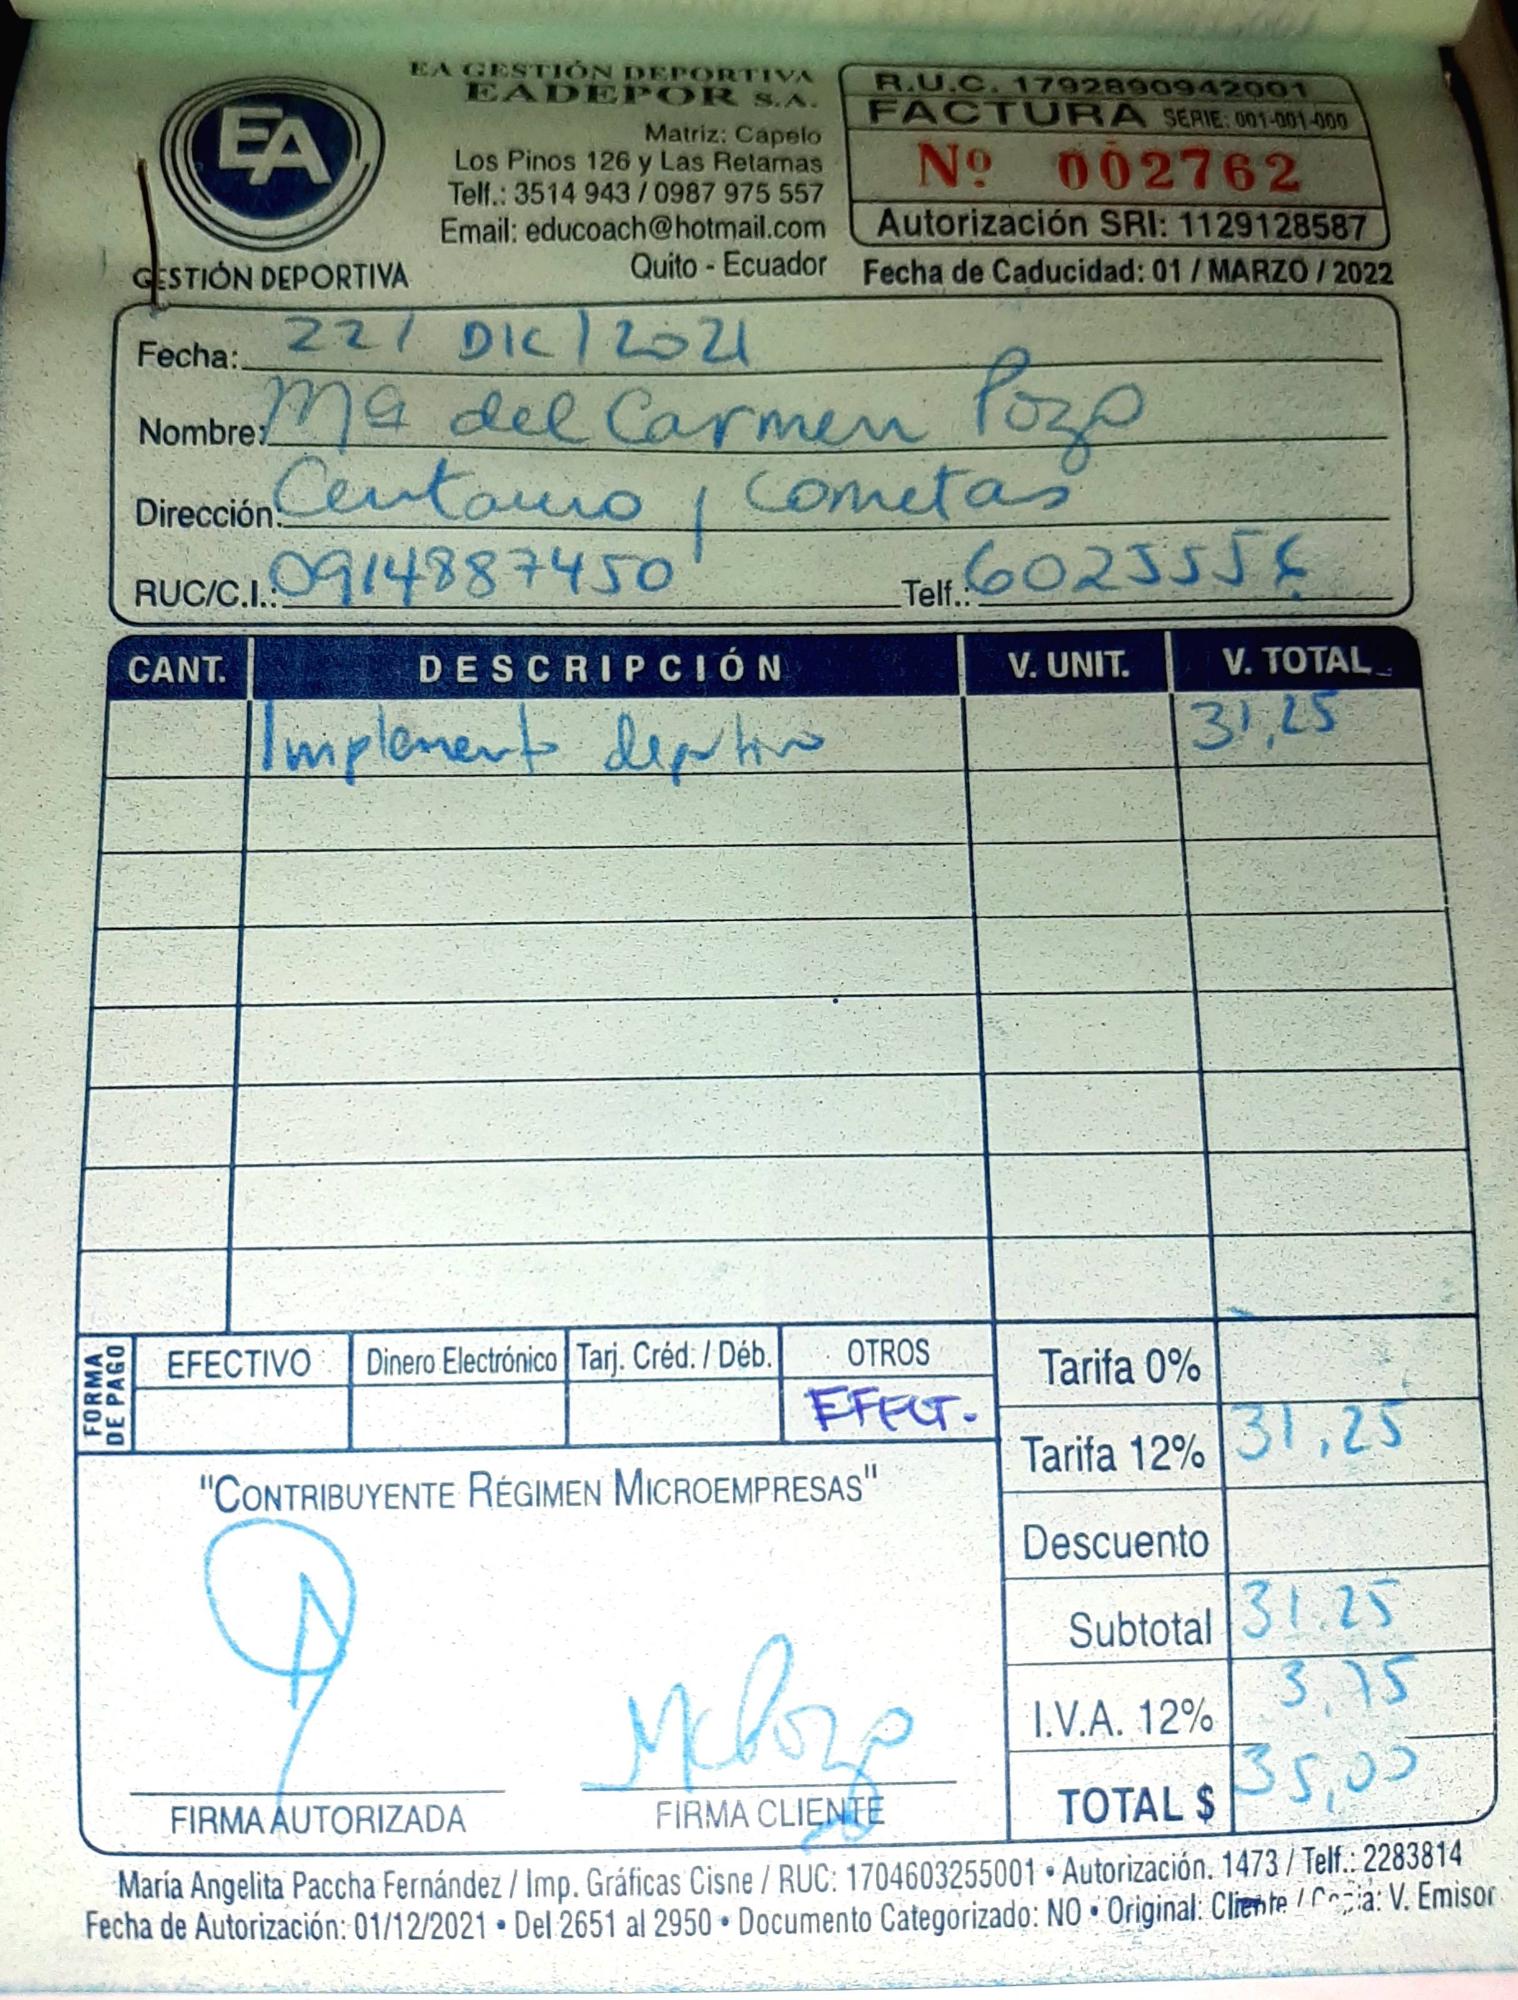 EA
GESTIÓN DEPORTIVA
EA GESTIÓN DEPORTIVA
EADEPOR S.A.
Matriz: Capelo
Los Pinos 126 y Las Retamas
Telf.: 3514 943 / 0987 975 557
Email: educoach@hotmail.com
Quito - Ecuador
R.U.C. 1792890942001
FACTURA SERIE: 001-001-000
Nº 002762
Autorización SRI: 1129128587
Fecha de Caducidad: 01 / MARZO / 2022
Fecha: 22 / DIC / 2021
Nombre: Mª del Carmen Pozo
Dirección: Centauro y Cometas
RUC/C.I.: 0914887450 Telf.:
CANT. DESCRIPCIÓN V. UNIT. V. TOTAL
Implemento deportivo 31,25
FORMA DE PAGO
EFECTIVO Dinero Electrónico Tarj. Créd. / Déb. OTROS
EFECT.
Tarifa 0%
Tarifa 12% 31,25
Descuento
Subtotal 31.25
I.V.A. 12% 3,75
TOTAL $ 35,00
"CONTRIBUYENTE RÉGIMEN MICROEMPRESAS"
McPozo
FIRMA AUTORIZADA FIRMA CLIENTE
María Angelita Paccha Fernández / Imp. Gráficas Cisne / RUC: 1704603255001 • Autorización. 1473 / Telf.: 2283814
Fecha de Autorización: 01/12/2021 • Del 2651 al 2950 • Documento Categorizado: NO • Original: Cliente / Copia: V. Emisor